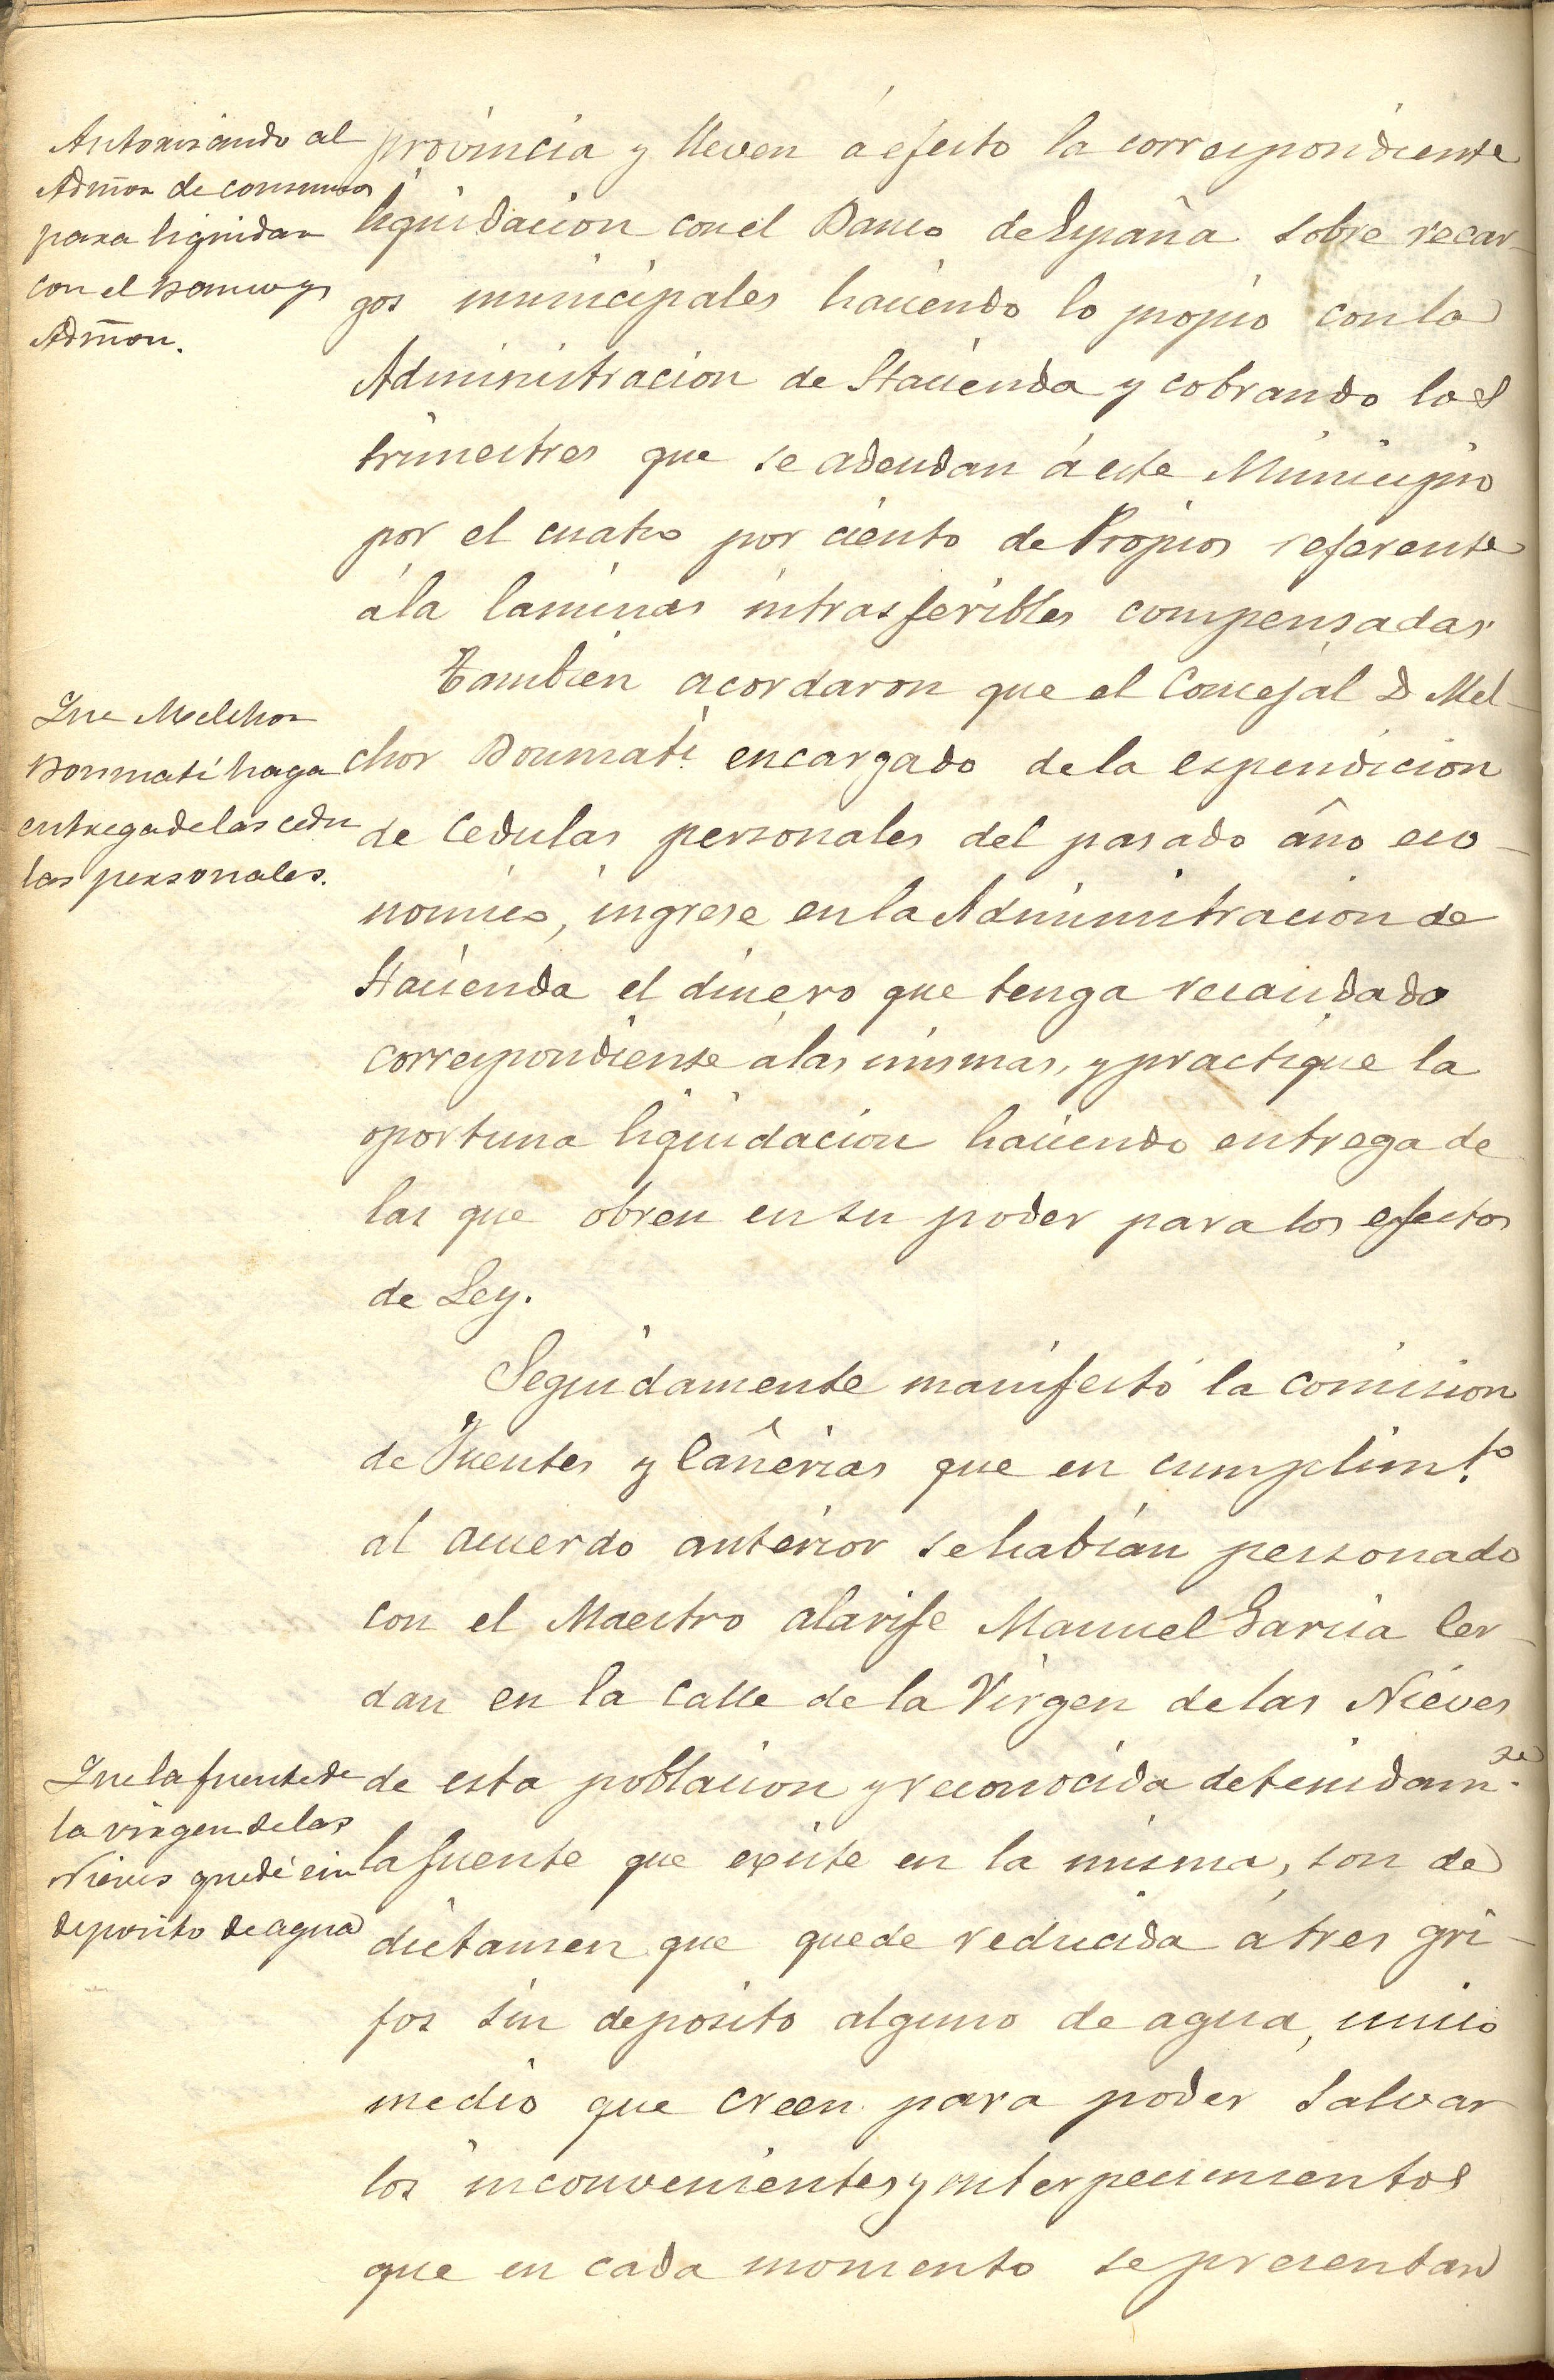 Autorizando al
Admōr de consumos
para liquidar
con el Banco y
Admōn.
provincia y lleven á efecto la correspondiente
liquidacion con el Banco de España sobre recar-
gos municipales haciendo lo propio con la
Administracion de Hacienda y cobrando los
trimestres que se adeudan á este Municipio
por el cuatro por ciento de Propios referente
á la laminas intrasferibles compensadas.
Que Melchor
Bonmatí haga
entrega de las cedu
las personales.
Tambien acordaron que el Concejal D Mel-
chor Bonmatí encargado de la espendicion
de cedulas personales del pasado año eco-
nomico, ingrese en la Administracion de
Hacienda el dinero que tenga recaudado
correspondiente á las mismas, y practique la
oportuna liquidacion haciendo entrega de
las que obren en su poder para los efectos
de Ley.
Seguidamente manifestó la comision
de Fuentes y Cañerias que en cumplimto
al acuerdo anterior se habian personado
con el Maestro alarife Manuel Garcia Cer-
dan en la calle de la Virgen de las Nieves
Que la fuente de
la virgen de las
Nieves quede sin
deposito de agua
de esta poblacion y reconocida detenidamte
la fuente que existe en la misma, son de
dictamen que quede reducida á tres gri-
fos sin deposito alguno de agua, unico
medio que creen para poder salvar
los inconvenientes y enterpecimientos
que en cada momento se presentan